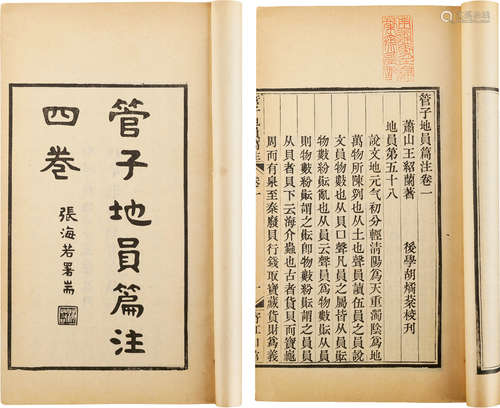 管子地員篇注
四卷
張海若署耑
管子地員篇注卷一
蕭山王紹蘭著 後學胡燏棻校刊
地員第五十八
說文地元气初分輕清陽爲天重濁陰爲地
萬物所陳列也从土也聲員讀伍員之員說
文員物數也从貝口聲凡員之屬皆从員
物數紛亂也从員云聲員爲物數
則物數紛謂之卽物數紛謂之員
从貝者貝下云海介蟲也古者貨貝而寶龜
周而有泉至秦廢貝行錢取寶藏貨財